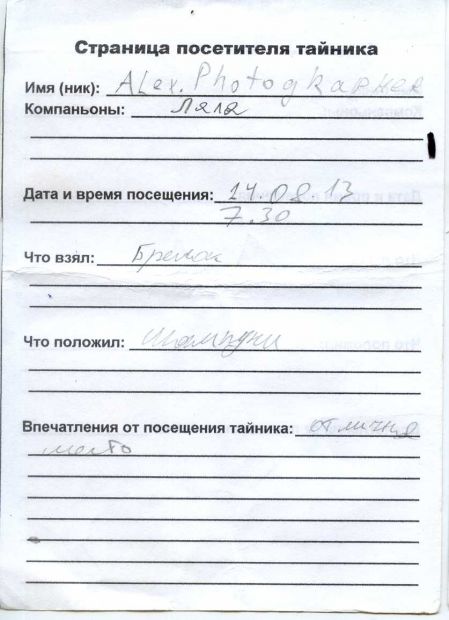 Страница посетителя тайника
Имя (ник): ALex. Photogкapнer
Компаньоны: Ляля
Дата и время посещения: 14.08.13
7.30
Что взял: Брелок
Что положил: Шампуни
Впечатления от посещения тайника: отличня
место